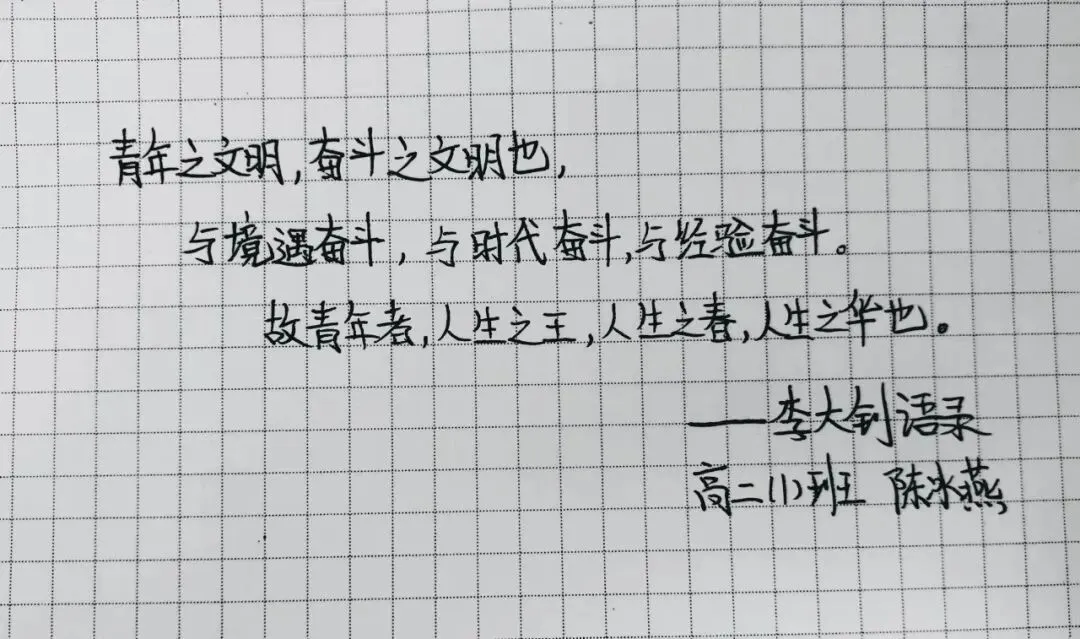 青年之文明,奋斗之文明也,
与境遇奋斗,与时代奋斗,与经验奋斗。
故青年者,人生之王,人生之春,人生之华也。
——李大钊语录
高二(1)班 陈冰燕